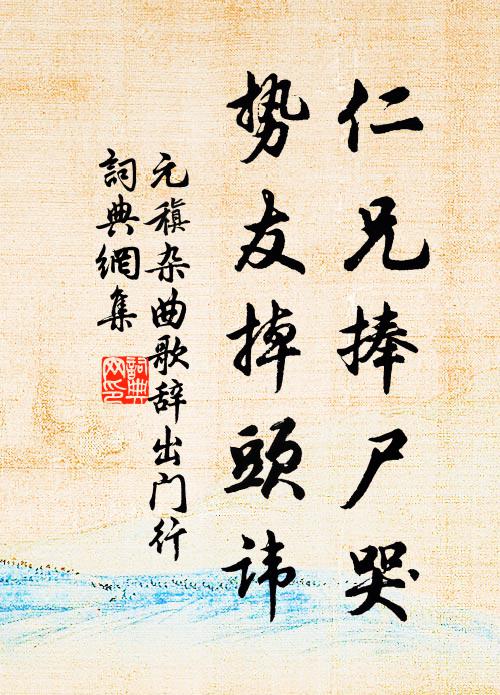 仁兄捧尸哭
势友掉頭讳
元稹杂曲歌辞出门行
詞典網集
詞典網印